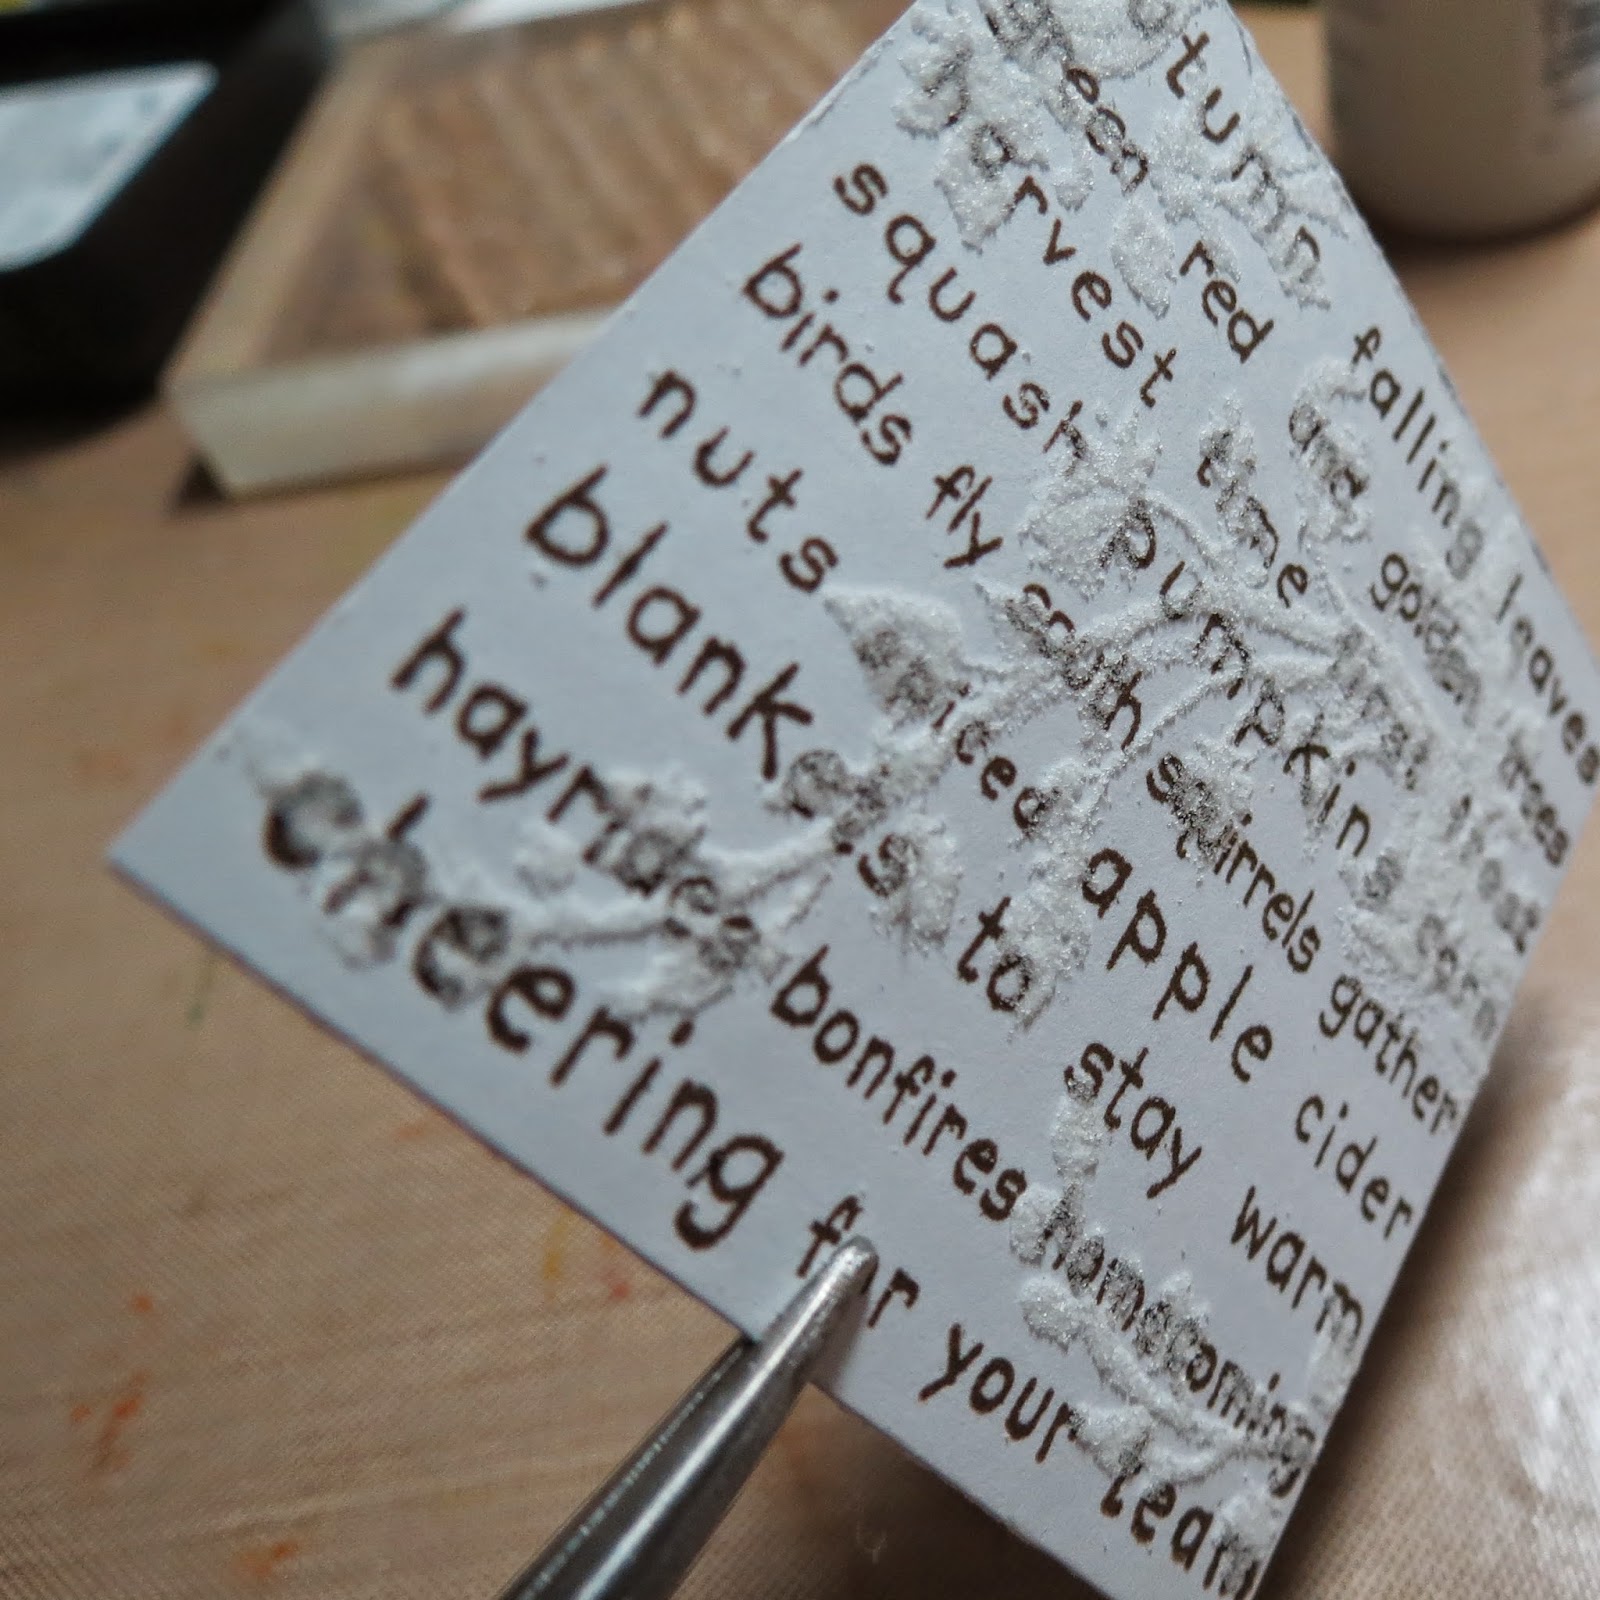 tumn falling leaves
green red and golden trees
harvest time
squash pumpkins corn
birds fly south squirrels gather
nuts spiced apple cider
blankets to stay warm
hayrides bonfires homecoming
cheering for your team